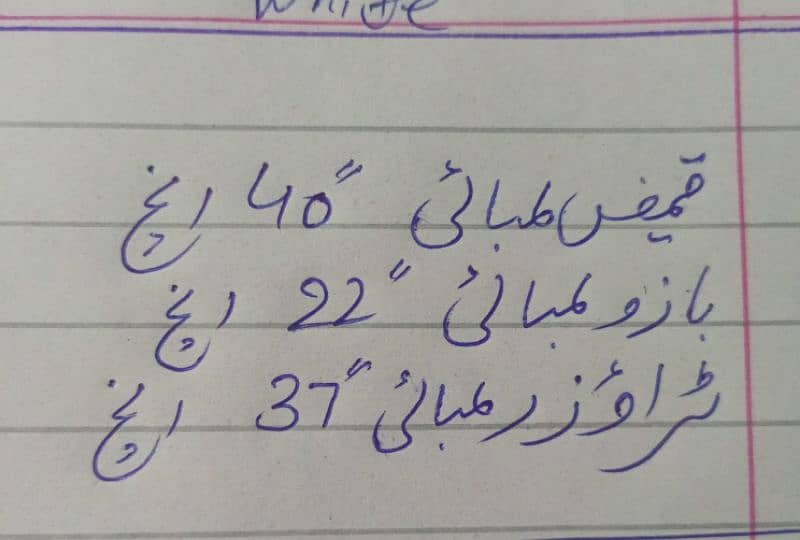 White
قمیض لمبائی 40" انچ
بازو لمبائی 22" انچ
ٹراؤزر لمبائی 37" انچ